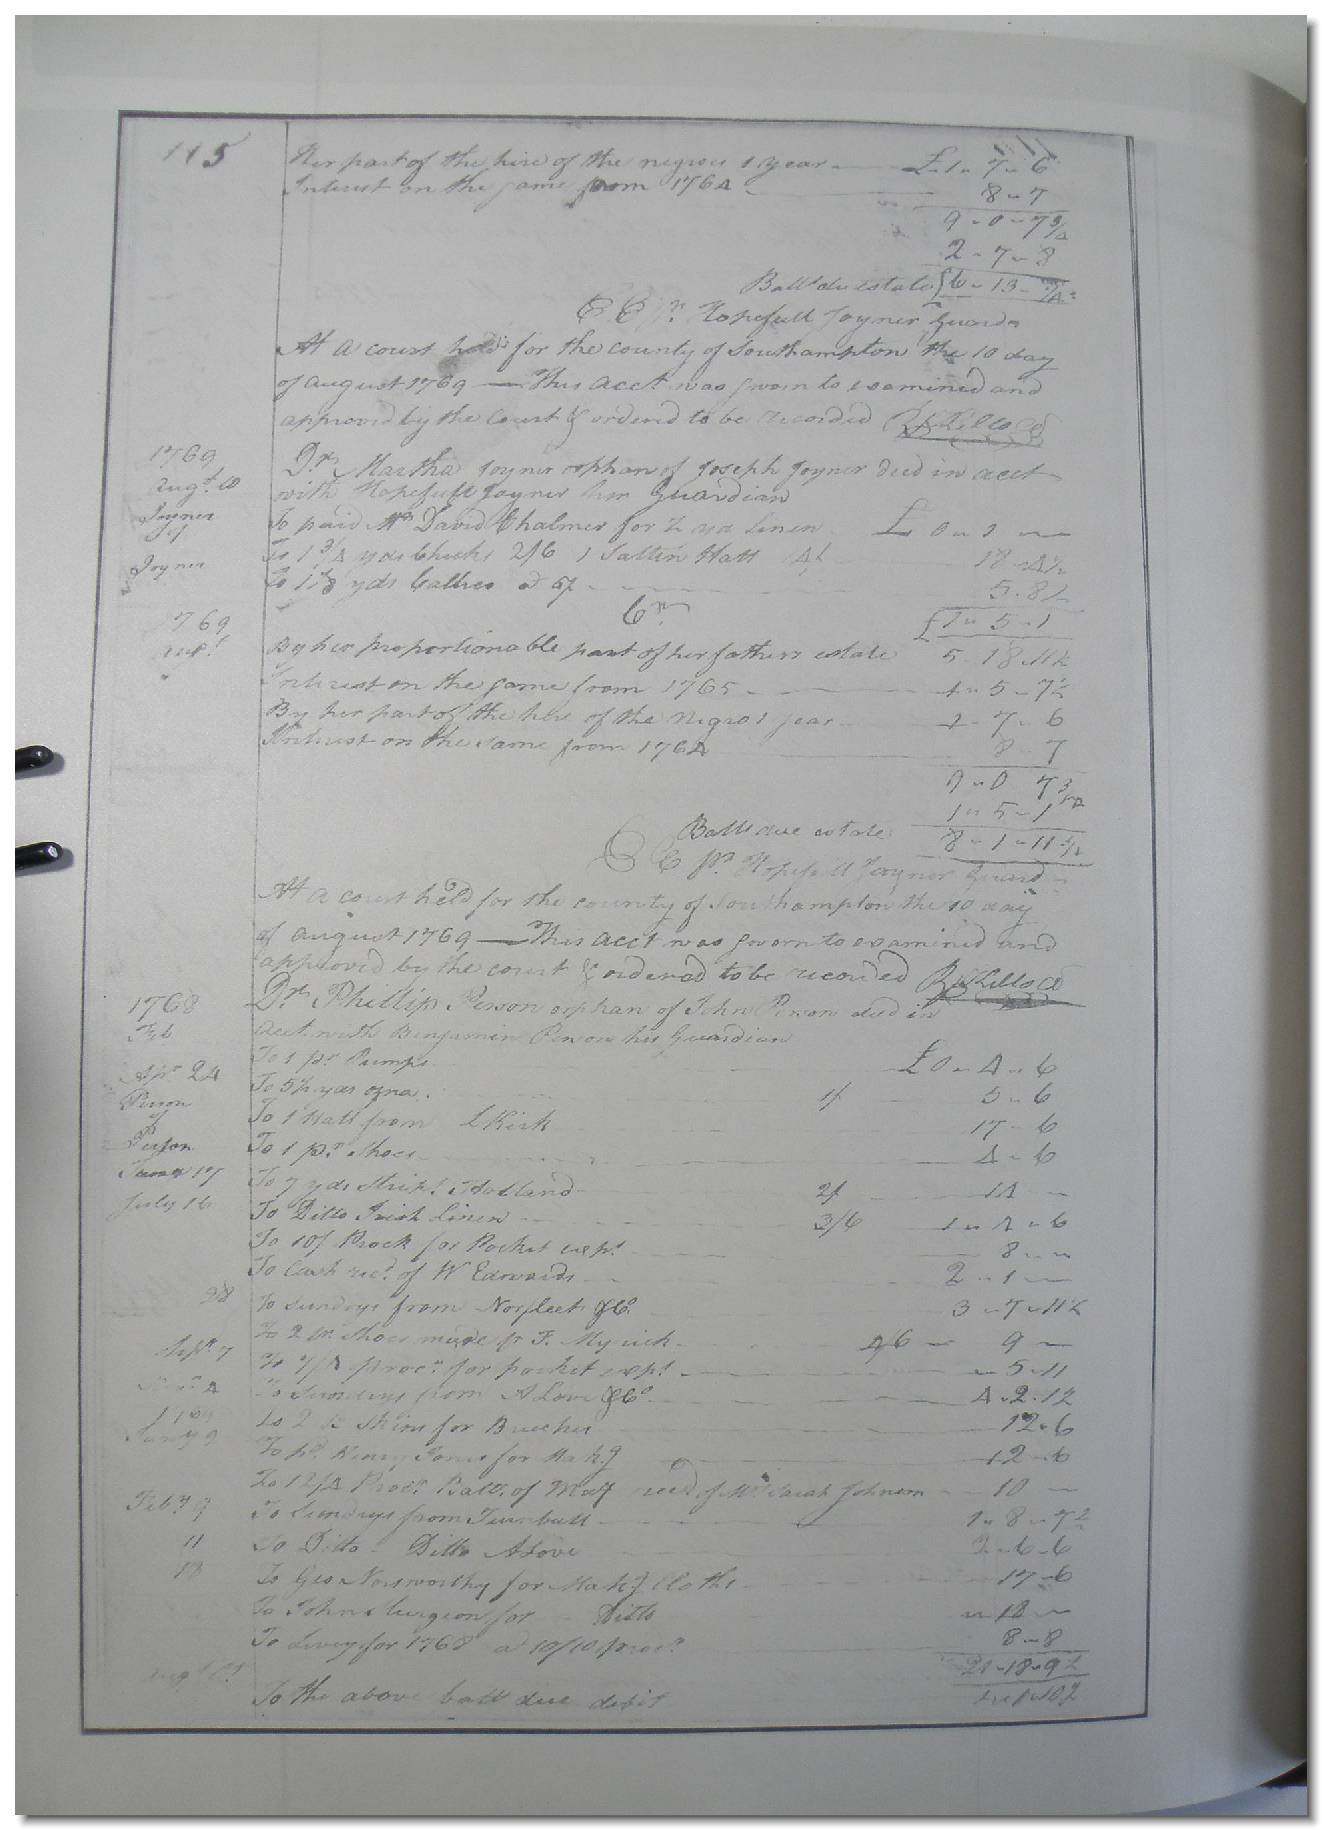 115
Her part of the hire of the negroes 1 year £1 " 7 " 6
Interest on the same from 1764 8 " 7
9 " 0 " 7 3/4
2 " 7 " 8
Balle due estate £6 " 13
E E pr. Hopefull Joyner Guardn
At a court held for the county of Southampton the 10 day
of august 1769 — This acct was sworn to examined and
approved by the court & ordered to be recorded
1769
augt. 10
Joyner
of
Joyner
Dr. Martha Joyner orphan of Joseph Joyner decd in acct
with Hopefull Joyner her Guardian
To paid Mr David Chalmer for yd linen £ 0 " 1 "
To 1 3/4 yds Checks 2/6 1 Sattin Hatt 18 " 4½
To yds Callico 5 " 8½
Cr.
£1 " 5 " 1
1769
augt.
By her proportionable part of her fathers estate 5 " 18 " 11½
Interest on the same from 1765 1 " 5 " 7½
By her part of the hire of the Negros 1 year 1 " 7 " 6
Interest on the same from 1764 8 " 7
9 " 0 " 7 3/4
1 " 5 " 1
Balle due estate 8 " 1 " 11
E E pr. Hopefull Joyner Guardn
At a court held for the county of Southampton the 10 day
of august 1769 — This acct was sworn to examined and
approved by the court & ordered to be recorded
1768
Feb
Dr. Phillip Person orphan of John Person decd in
acct. with Benjamin Person his Guardian
To 1 pr. Pumps £0 " 4 " 6
Apr. 24 To 5½ yds ozna. 1/ 5 " 6
Person
of
Person
To 1 Hatt from Kirk 17 " 6
To 1 pr. Shoes 4 " 6
June 17 To 7 yds Stript. Holland 2/ 14 "
July 16 To Ditto Irish Linen 3/6 1 " 4 " 6
To 10/ Prock for Pocket expt. 8 " "
To Cash recd. of W Edwards 2 " 1 "
28 To sundrys from Norfleet & Co. 3 " 7 " 11½
To 2 pr. Shoes made pr F. Myrick 4/6 9 "
Sept. 7 To 7/4 procn. for pocket expt. " 5 " 11
4 To Sundrys from A Love & Co. 4 " 2 " 1½
1769
Jany 9
To 2 Skins for Breeches 12 " 6
To pd. Henry Jones for Makg 12 " 6
To 12/4 Procn. Balle. of Mony recd of Mrs Sarah Johnson 10 "
Feby 9 To Sundrys from Turnbull 1 " 8 " 7½
11 To Ditto Ditto A Love 2 " 6 " 6
To Geo Norsworthy for Makg cloths 17 " 6
To John Surgeon for Ditto " 12 "
To Levy for 1768 at 10/10 procn. 8 " 8
21 " 18 " 9½
augt. To the above balle due debit